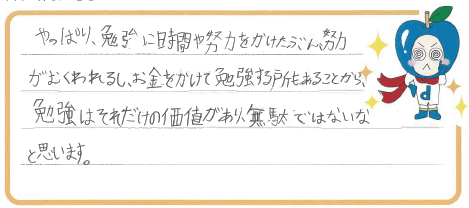 やっぱり、勉強に時間や努力をかけたぶん、努力
がむくわれるし、お金をかけて勉強する所もあることから、
勉強はそれだけの価値があり、無駄ではないな
と思います。
d